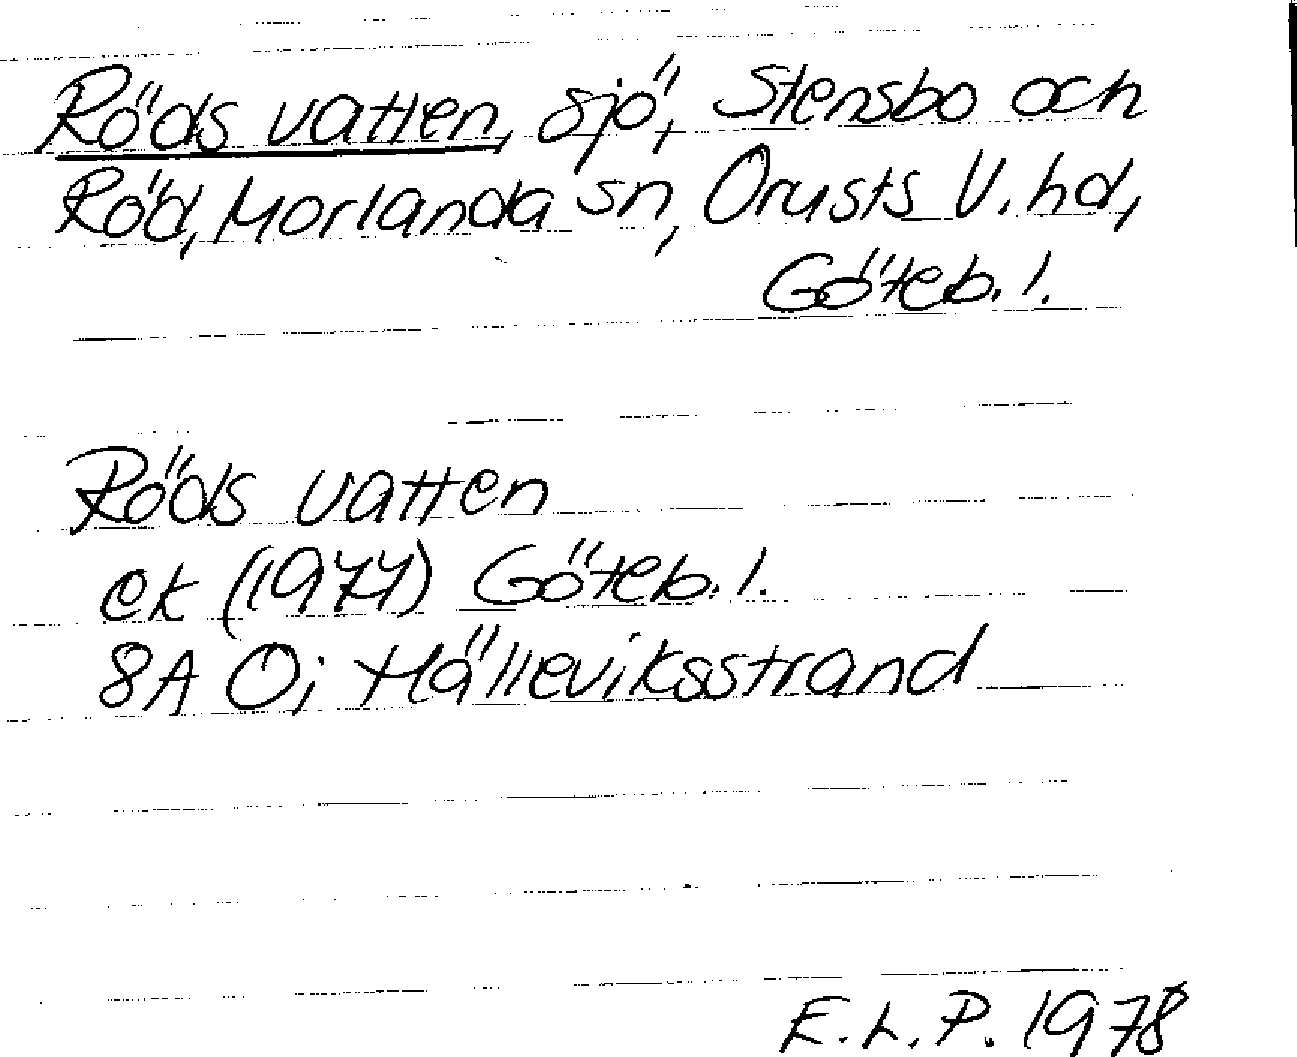 Röds vatten, sjö, Stensbo och
Röd, Morlanda sn, Orusts V. hd,
Göteb. l.
Röds vatten
ek (1977) Göteb. l.
8A Oj Hälleviksstrand
E.L.P. 1978